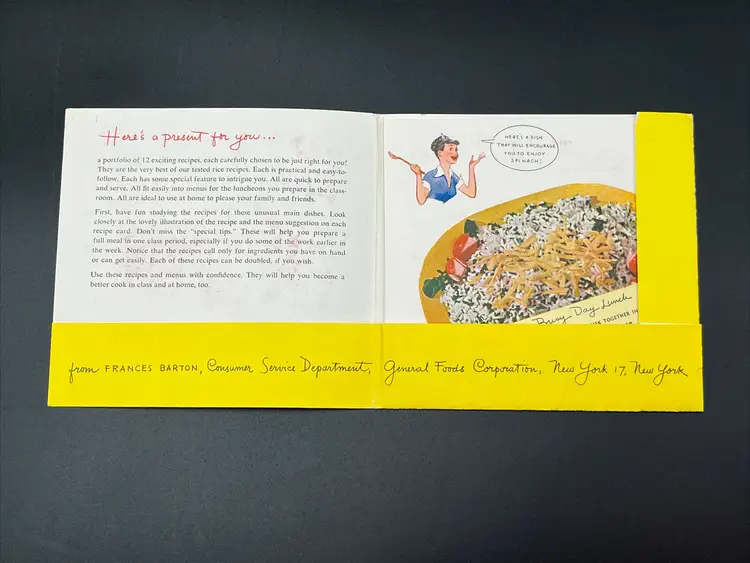 Here's a present for you...
a portfolio of 12 exciting recipes, each carefully chosen to be just right for you!
They are the very best of our tested rice recipes. Each is practical and easy-to-
follow. Each has some special feature to intrigue you. All are quick to prepare
and serve. All fit easily into menus for the luncheons you prepare in the class-
room. All are ideal to use at home to please your family and friends.
First, have fun studying the recipes for these unusual main dishes. Look
closely at the lovely illustration of the recipe and the menu suggestion on each
recipe card. Don't miss the "special tips." These will help you prepare a
full meal in one class period, especially if you do some of the work earlier in
the week. Notice that the recipes call only for ingredients you have on hand
or can get easily. Each of these recipes can be doubled, if you wish.
Use these recipes and menus with confidence. They will help you become a
better cook in class and at home, too.
HERE'S A DISH
THAT WILL ENCOURAGE
YOU TO ENJOY
SPINACH!
Busy Day Lunch
TOGETHER IN
from FRANCES BARTON, Consumer Service Department, General Foods Corporation, New York 17, New York